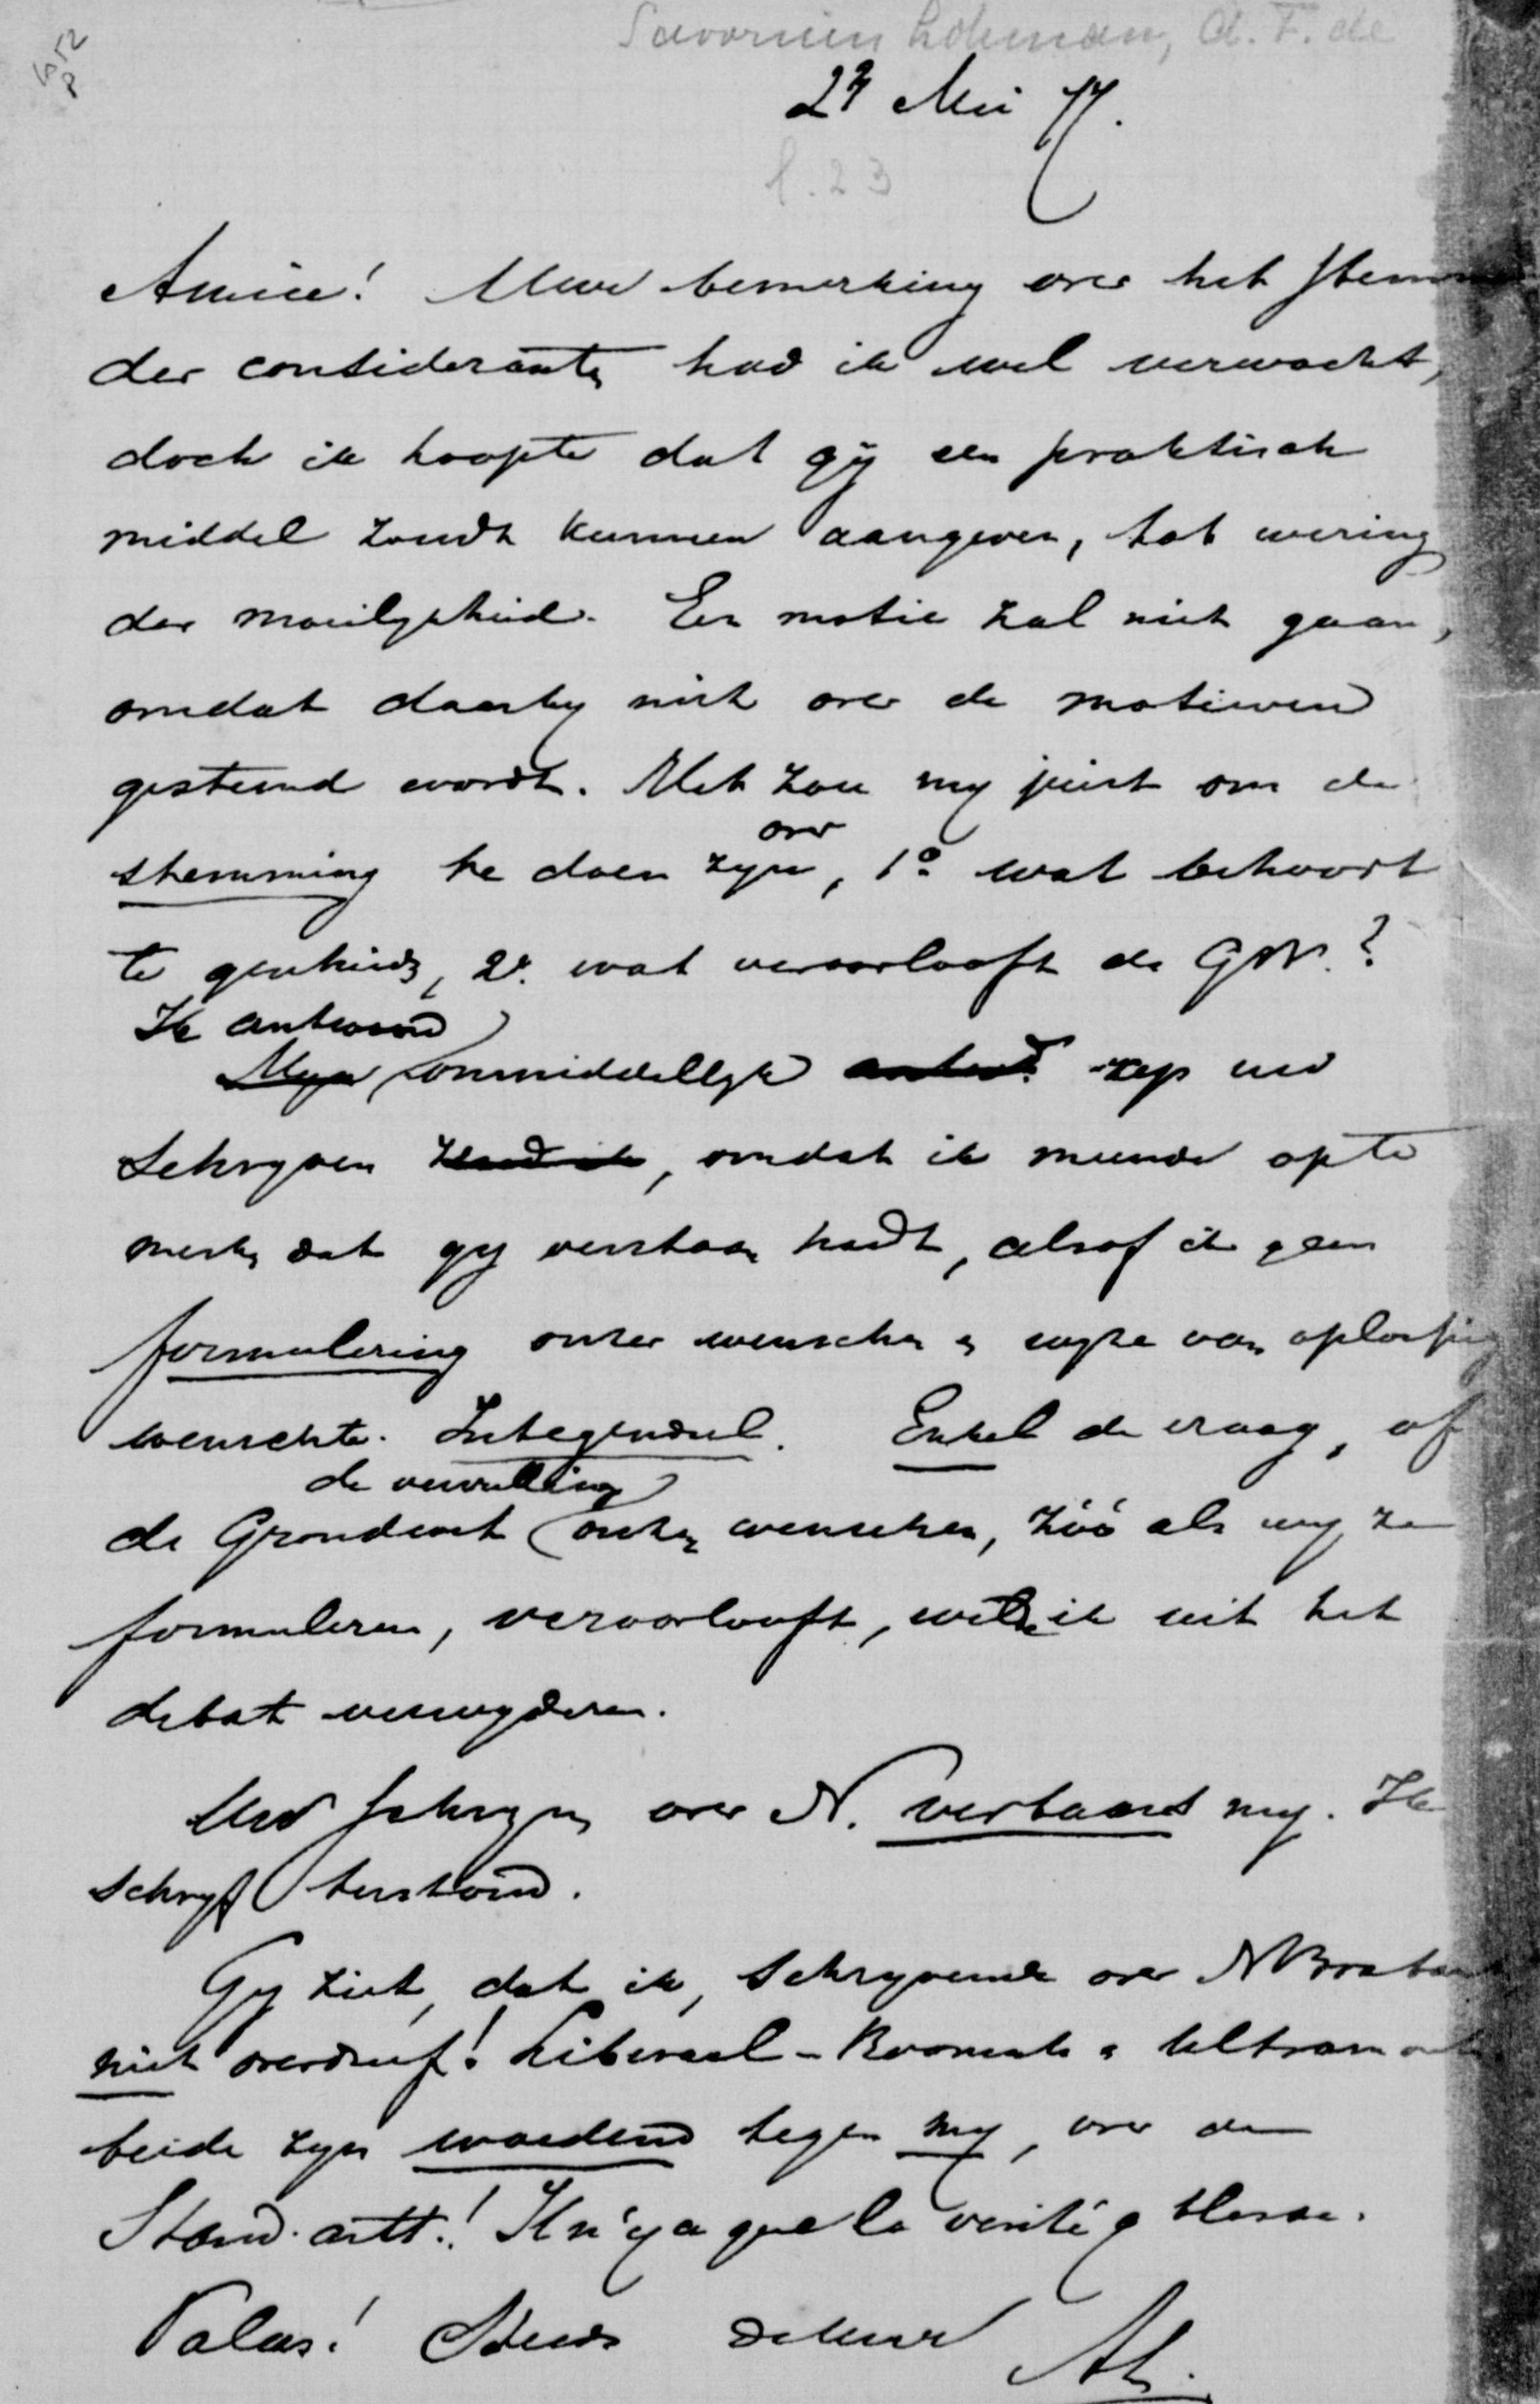 Savornin Lohman, A. F. de
27 Mei 77.
f. 23
Amice! Uwe bemerking over het stemmen
der considerants had ik wel verwacht,
doch ik hoopte dat gij een praktisch
middel zoudt kunnen aangeven, tot wering
der moeilijkheid. Een motie zal niet gaan,
omdat daarby niet over de motieven
gestemd wordt. Het zou my juist om de
over
stemming te doen zyn, 1o wat behoort
te geschieden, 2o. wat veroorlooft de GW.?
Ik antwoord
Myn onmiddellyk antwd. op uw
schryven, omdat ik meende op te
merken dat gy verstaan hadt, alsof ik geen
formulering onzer wenschen en wyze van oplossing
wenschte. Integendeel. Enkel de vraag, of
de vervulling
de Grondwet onzer wenschen, zóó als wy ze
formuleren, veroorlooft, wilde ik uit het
debat verwyderen.
Uw schryven over N. verbaast my. Ik
schryf terstond.
Gy ziet, dat ik, schryvende over NBrabant
niet overdreef! Liberaal-Roomsch en Ultramont
beide zyn woedend tegen my, over de
Stand. artt.! Il n'y a que la vérité q blesse.
Vale! Steeds
AL.